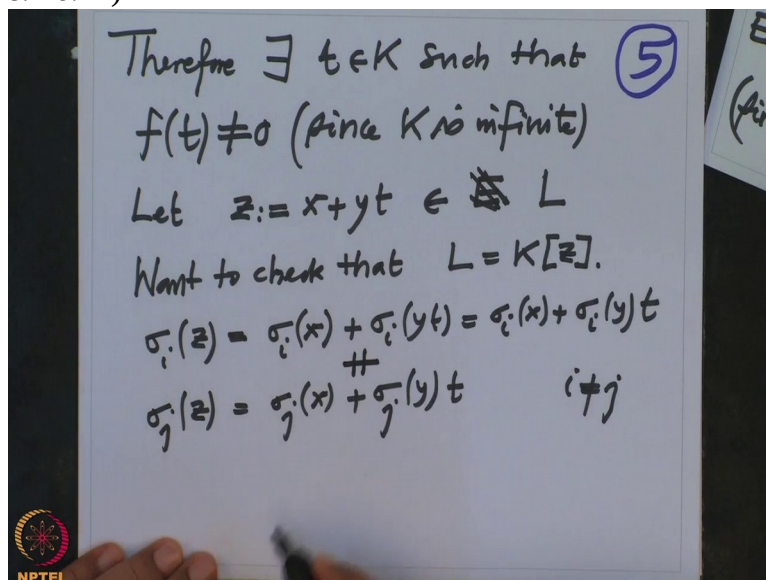 Therefore ∃ t ∈ K such that
5
f(t) ≠ 0 (since K is infinite)
Let z := x + yt ∈ L
Want to check that L = K[z].
σ_i(z) = σ_i(x) + σ_i(yt) = σ_i(x) + σ_i(y) t
≠
σ_j(z) = σ_j(x) + σ_j(y) t i ≠ j
NPTEL